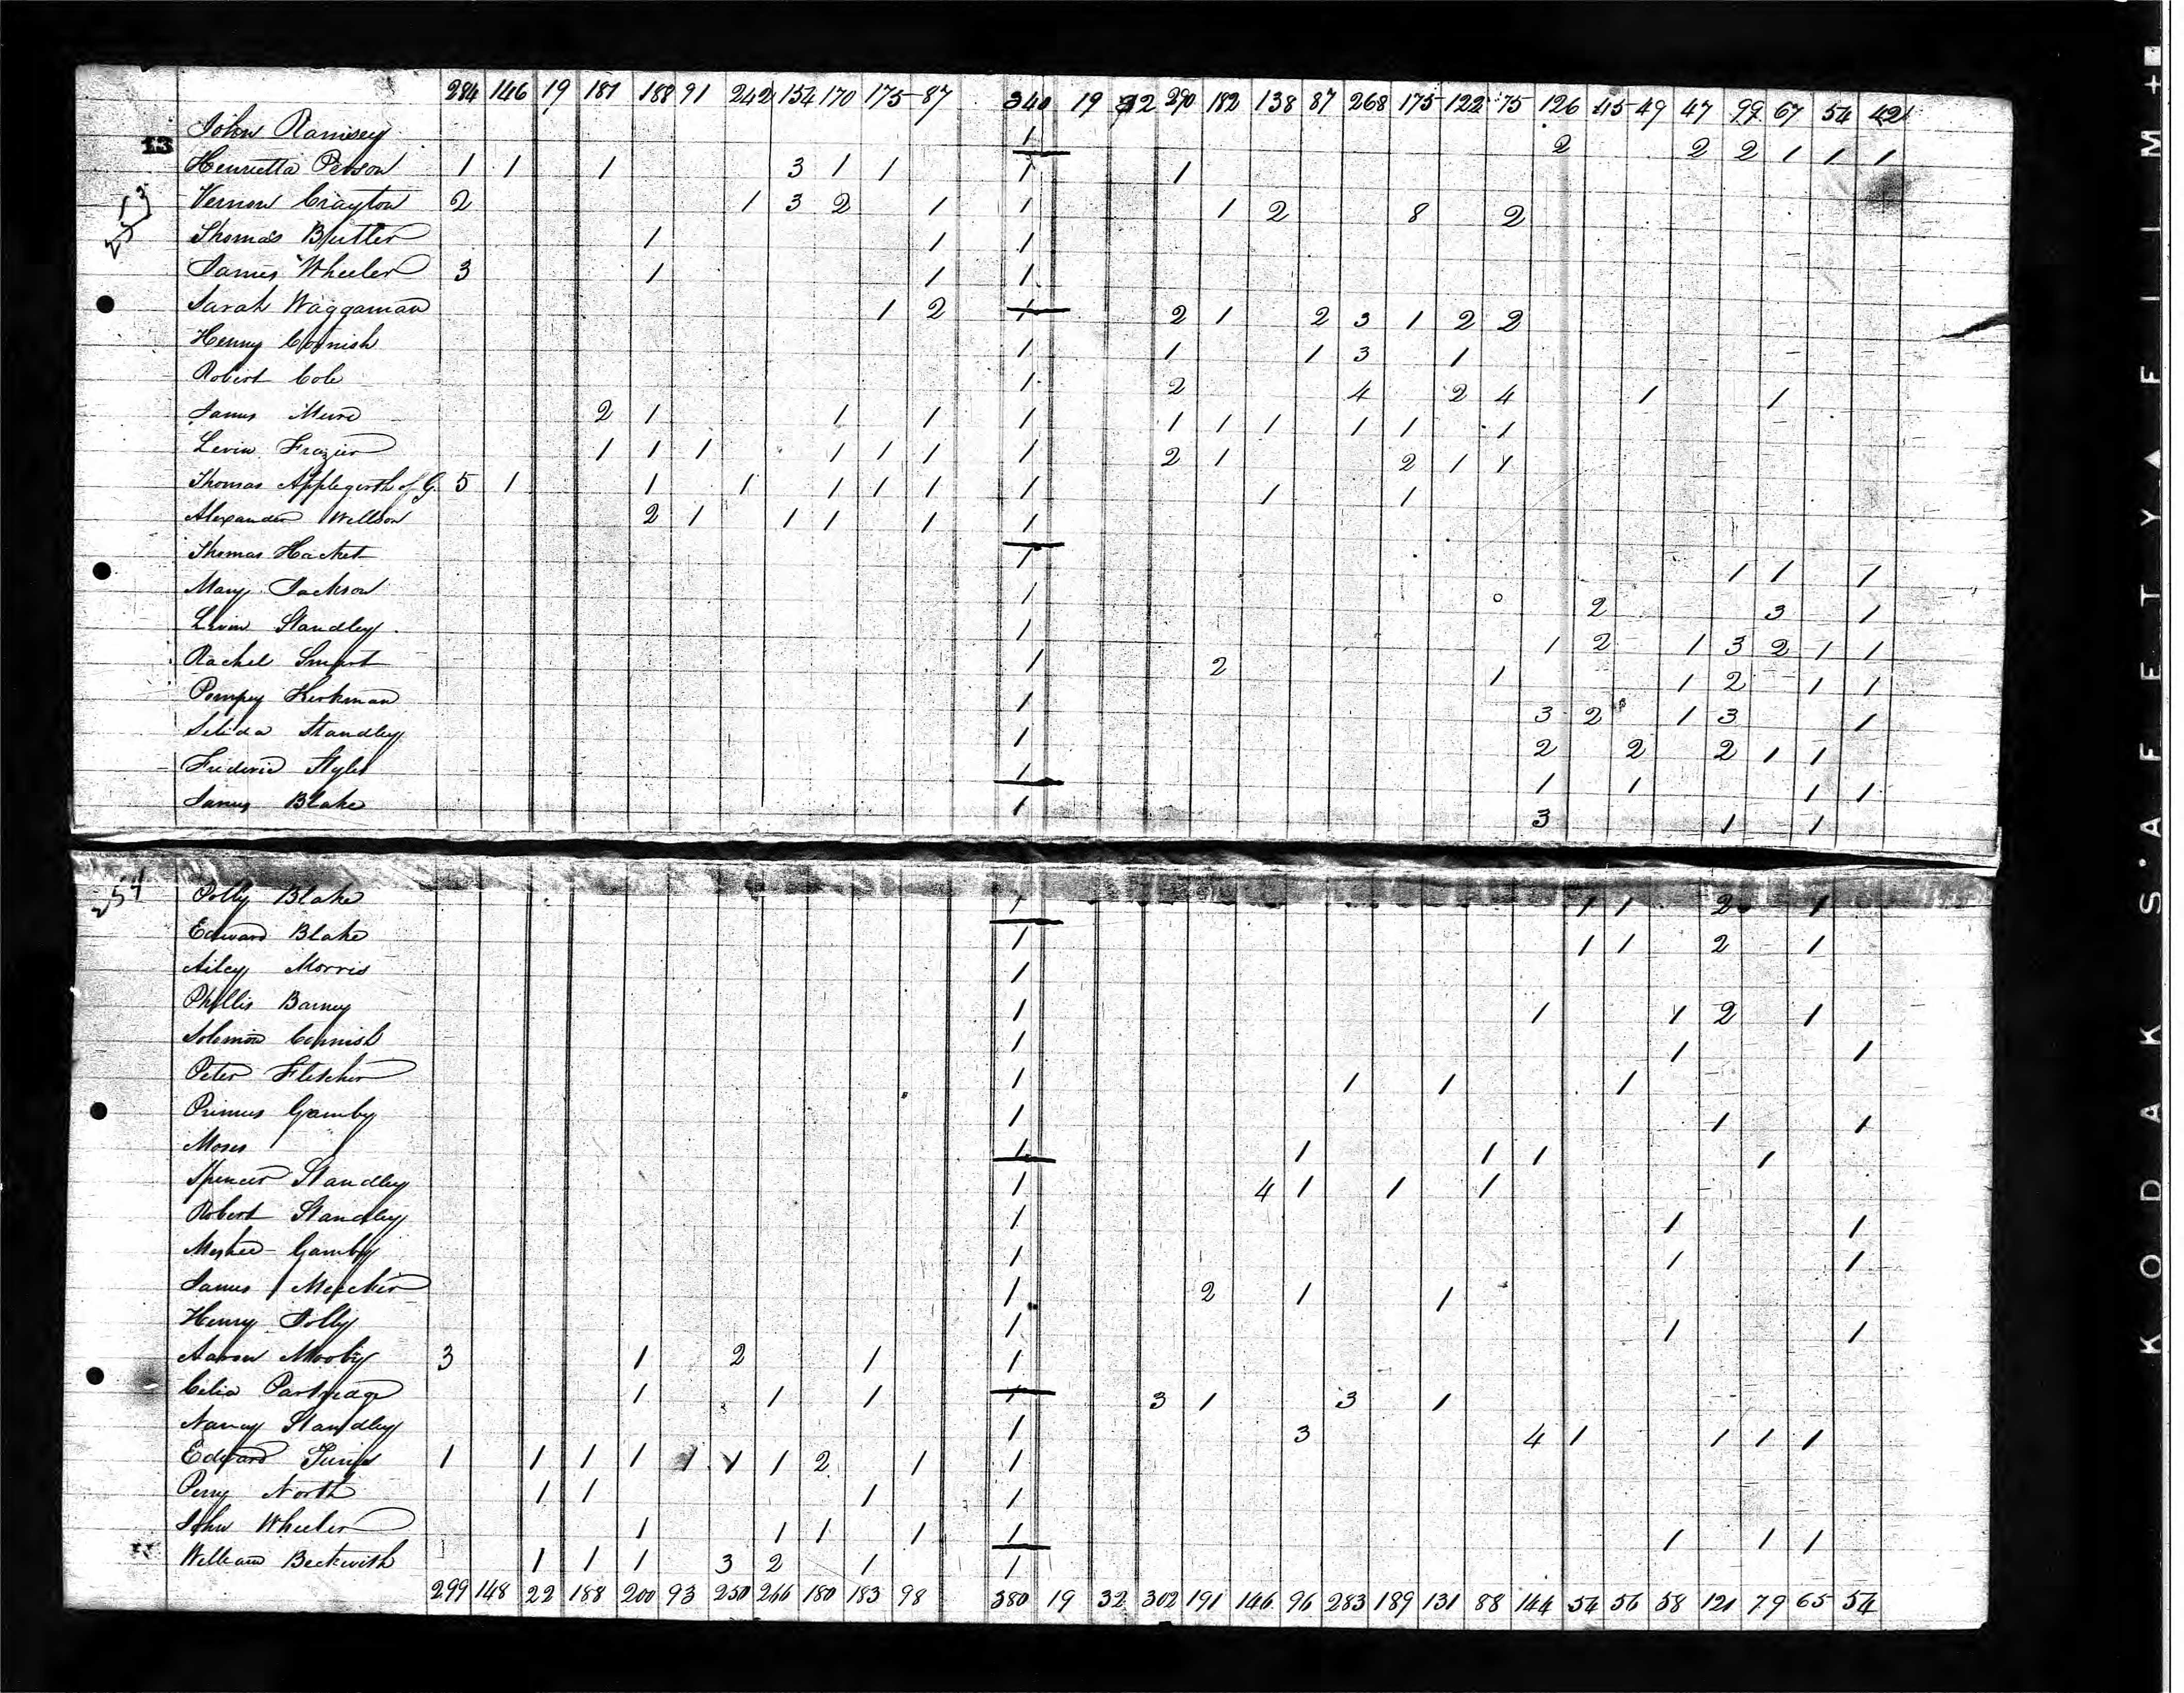 284 146 19 181 188 91 242 154 170 175 87 340 19 32 290 182 138 87 268 175 122 75 126 45 49 47 99 67 54 42
13
John Ramsey 1 2 2 2 1 1 1
Henrietta Person 1 1 1 3 1 1 1 1
253
Vernon Crayton 2 1 3 2 1 1 1 2 8 2
Thomas Butler 1 1 1
James Wheeler 3 1 1 1
Sarah Waggaman 1 2 1 2 1 2 3 1 2 2
Henny Cornish 1 1 1 3 1
Robert Cole 1 2 4 2 4 1 1
James 2 1 1 1 1 1 1 1 1 1 1
Levin Frazier 1 1 1 1 1 1 1 2 1 2 1 1
Thomas Applegarth of G. 5 1 1 1 1 1 1 1 1 1
Alexander Willson 2 1 1 1 1 1
Thomas Hacket 1 1 1 1
Mary Jackson 1 2 3 1
Levin Standley 1 1 2 1 3 2 1 1
Rachel Smart 1 2 1 1 2 1 1
Pompey Kirkman 1 3 2 1 3 1
Standley 1 2 2 2 1 1
Frederic Styles 1 1 1 1 1
James Blake 1 3 1 1
254
Polly Blake 1 1 1 2 1
Edward Blake 1 1 1 2 1
Ailey Morris 1
Phillis Barney 1 1 1 2 1
Solomon Cornish 1 1 1
Peter Fletcher 1 1 1 1
Primus Gamby 1 1 1
Moses 1 1 1 1 1
Spencer Standley 1 4 1 1 1
Robert Standley 1 1 1
Gamby 1 1 1
James 1 2 1 1
Henry Jolly 1 1 1
Aaron 3 1 2 1 1
Celia Partridge 1 1 1 1 3 1 3 1
Nancy Standley 1 3 4 1 1 1 1
Edward 1 1 1 1 1 1 1 2 1 1
Perry North 1 1 1 1
John Wheeler 1 1 1 1 1 1 1 1
William Beckwith 1 1 1 3 2 1 1
299 148 22 188 200 93 250 266 180 183 98 380 19 32 302 191 146 96 283 189 131 88 144 54 56 58 121 79 65 54
KODAK S'AFETY▲FILM+